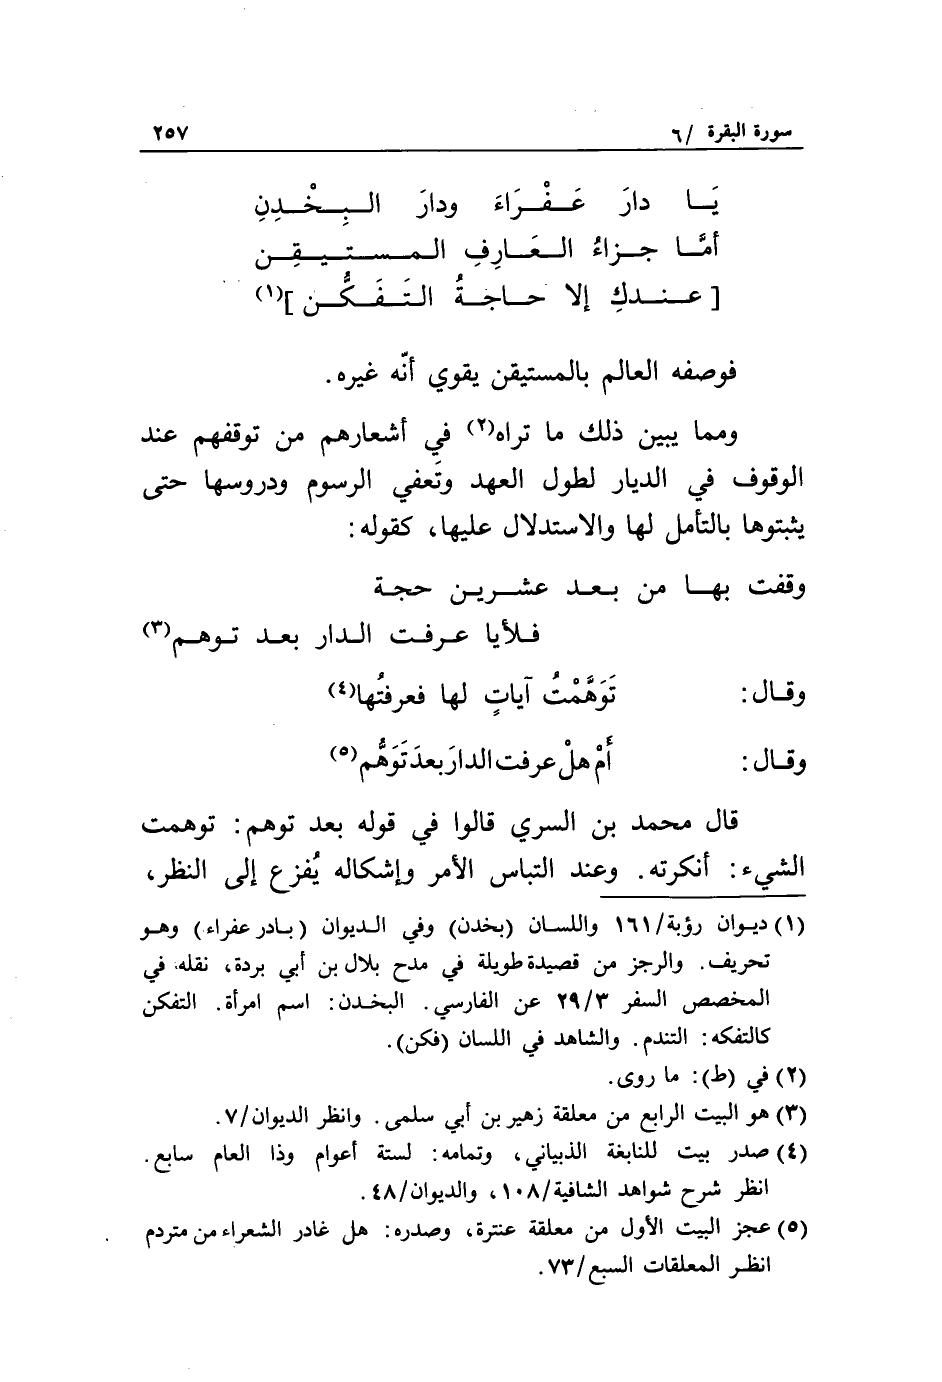 سورة البقرة /٦ ٢٥٧
يَـا دارَ عَـفْـرَاءَ ودارَ الـبِـخْـدِنِ
أمَّا جـزاءُ الـعَـارِفِ الـمـسـتـيـقِـن
[عـنـدكِ إلا حـاجـةُ التَـفَـكُّـن](١)
فوصفه العالم بالمستيقن يقوي أنّه غيره.
ومما يبين ذلك ما تراه(٢) في أشعارهم من توقفهم عند
الوقوف في الديار لطول العهد وتَعفي الرسوم ودروسها حتى
يثبتوها بالتأمل لها والاستدلال عليها، كقوله:
وقفت بهـا من بـعـد عشـريـن حجـة
فـلأيا عـرفـت الـدار بعـد تـوهـم(٣)
وقـال: تَوَهَّمْتُ آياتٍ لها فعرفتُها(٤)
وقـال: أَمْ هلْ عرفت الدارَ بعدَ تَوَهُّم(٥)
قال محمد بن السري قالوا في قوله بعد توهم: توهمت
الشيء: أنكرته. وعند التباس الأمر وإشكاله يُفزع إلى النظر،
(١) ديـوان رؤبة/١٦١ واللسـان (بخدن) وفي الـديوان (بـادر عفراء) وهـو
تحريف. والرجز من قصيدة طويلة في مدح بلال بن أبي بردة، نقله في
المخصص السفر ٢٩/٣ عن الفارسي. البخدن: اسم امرأة. التفكن
كالتفكه: التندم. والشاهد في اللسان (فكن).
(٢) في (ط): ما روى.
(٣) هو البيت الرابع من معلقة زهير بن أبي سلمى. وانظر الديوان/٧.
(٤) صدر بيت للنابغة الذبياني، وتمامه: لستة أعوام وذا العام سابع.
انظر شرح شواهد الشافية/١٠٨، والديوان/٤٨.
(٥) عجز البيت الأول من معلقة عنترة، وصدره: هل غادر الشعراء من متردم
انظـر المعلقات السبع/٧٣.